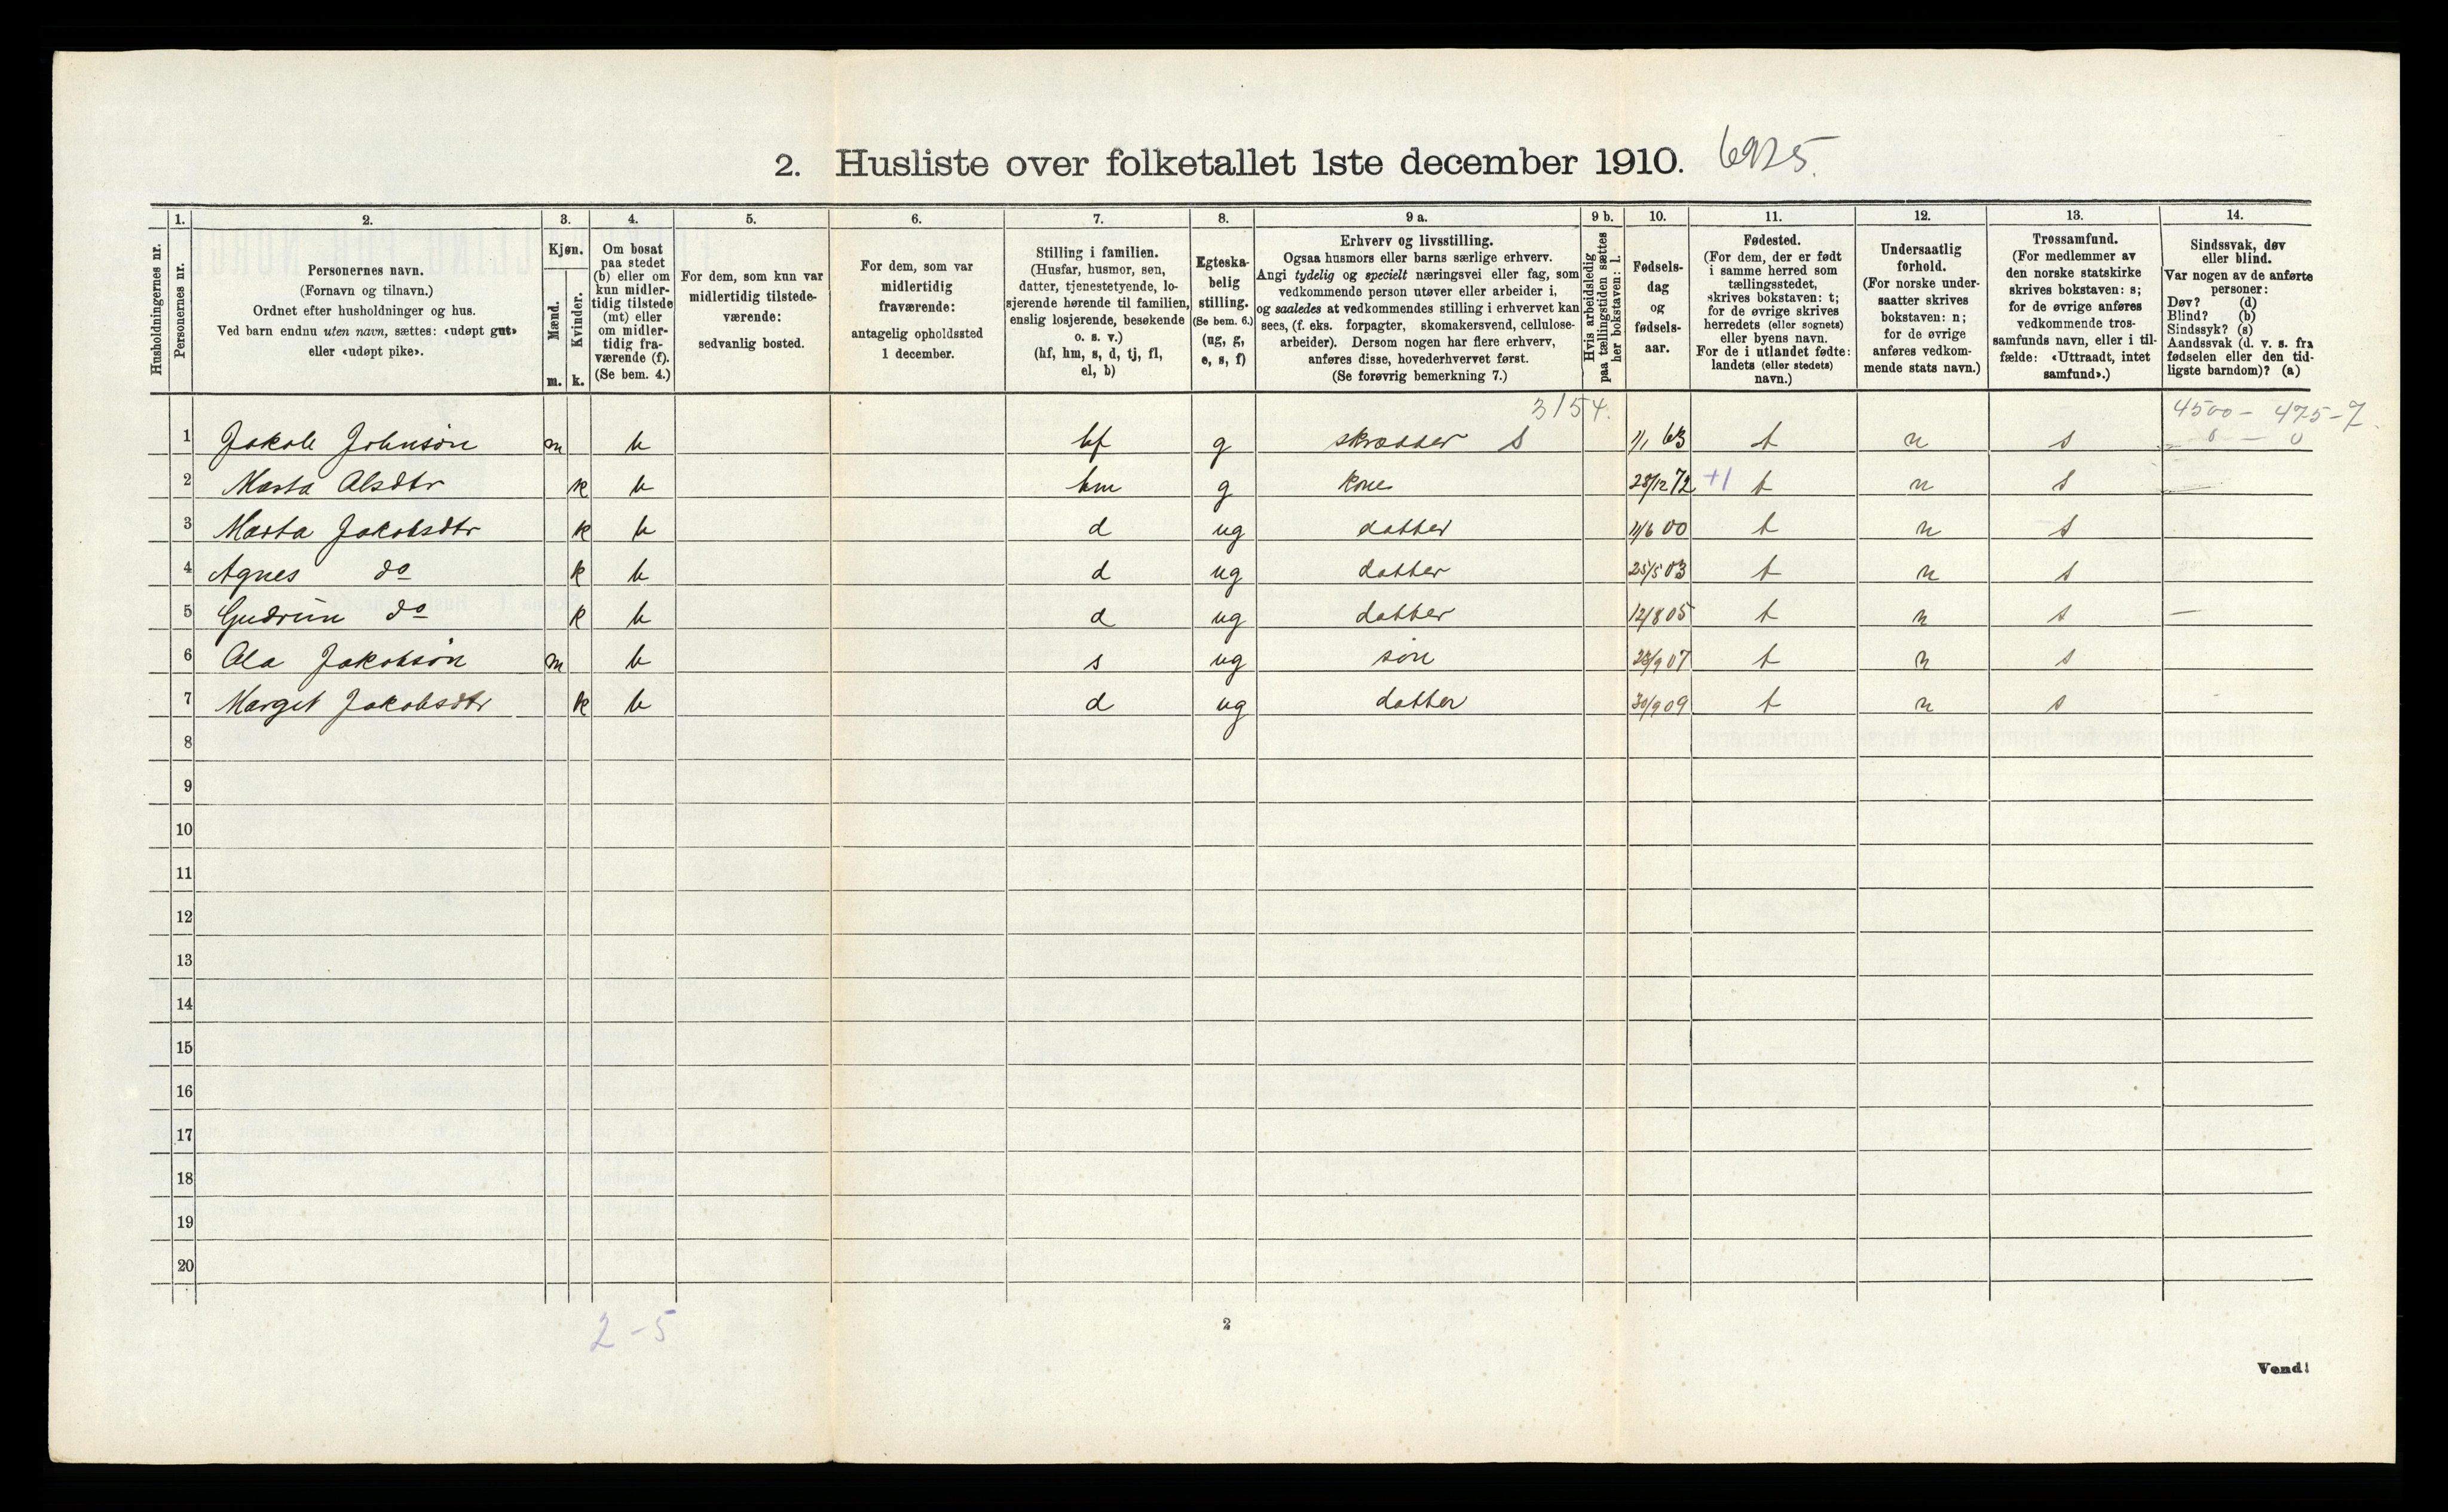 2. Husliste over folketallet 1ste december 1910. 6925.
Husholdningernes nr.
1. Personernes nr.
2. Personernes navn. (Fornavn og tilnavn.) Ordnet efter husholdninger og hus. Ved barn endnu uten navn, sættes: «udøpt gut» eller «udøpt pike».
3. Kjøn. Mænd. m. Kvinder. k.
4. Om bosat paa stedet (b) eller om kun midlertidig tilstede (mt) eller om midlertidig fraværende (f). (Se bem. 4.)
5. For dem, som kun var midlertidig tilstedeværende: sedvanlig bosted.
6. For dem, som var midlertidig fraværende: antagelig opholdssted 1 december.
7. Stilling i familien. (Husfar, husmor, søn, datter, tjenestetyende, losjerende hørende til familien, enslig losjerende, besøkende o. s. v.) (hf, hm, s, d, tj, fl, el, b)
8. Egteskabelig stilling. (Se bem. 6.) (ug, g, e, s, f)
9 a. Erhverv og livsstilling. Ogsaa husmors eller barns særlige erhverv. Angi tydelig og specielt næringsvei eller fag, som vedkommende person utøver eller arbeider i, og saaledes at vedkommendes stilling i erhvervet kan sees, (f. eks. forpagter, skomakersvend, cellulosearbeider). Dersom nogen har flere erhverv, anføres disse, hovederhvervet først. (Se forøvrig bemerkning 7.)
9 b. Hvis arbeidsledig paa tællingstiden sættes her bokstaven: l.
10. Fødselsdag og fødselsaar.
11. Fødested. (For dem, der er født i samme herred som tællingsstedet, skrives bokstaven: t; for de øvrige skrives herredets (eller sognets) eller byens navn. For de i utlandet fødte: landets (eller stedets) navn.)
12. Undersaatlig forhold. (For norske undersaatter skrives bokstaven: n; for de øvrige anføres vedkommende stats navn.)
13. Trossamfund. (For medlemmer av den norske statskirke skrives bokstaven: s; for de øvrige anføres vedkommende trossamfunds navn, eller i tilfælde: «Uttraadt, intet samfund».)
14. Sindssvak, døv eller blind. Var nogen av de anførte personer: Døv? (d) Blind? (b) Sindssyk? (s) Aandssvak (d. v. s. fra fødselen eller den tidligste barndom)? (a)
3154. 4500 - 475 - 7
1 Jakob Johnsøn m b hf g skrædder S 1/1 63 t n s 0 - 0
2 Marta Olsdtr k b hm g kone 28/12 72 +1 t n s
3 Marta Jakobsdtr k b d ug datter 11/6 00 t n s
4 Agnes do k b d ug datter 25/5 03 t n s
5 Gudrun do k b d ug datter 12/8 05 t n s
6 Ola Jakobsøn m b s ug søn 28/9 07 t n s
7 Marget Jakobsdtr k b d ug datter 30/9 09 t n s
8
9
10
11
12
13
14
15
16
17
18
19
20
2 - 5
2
Vend!